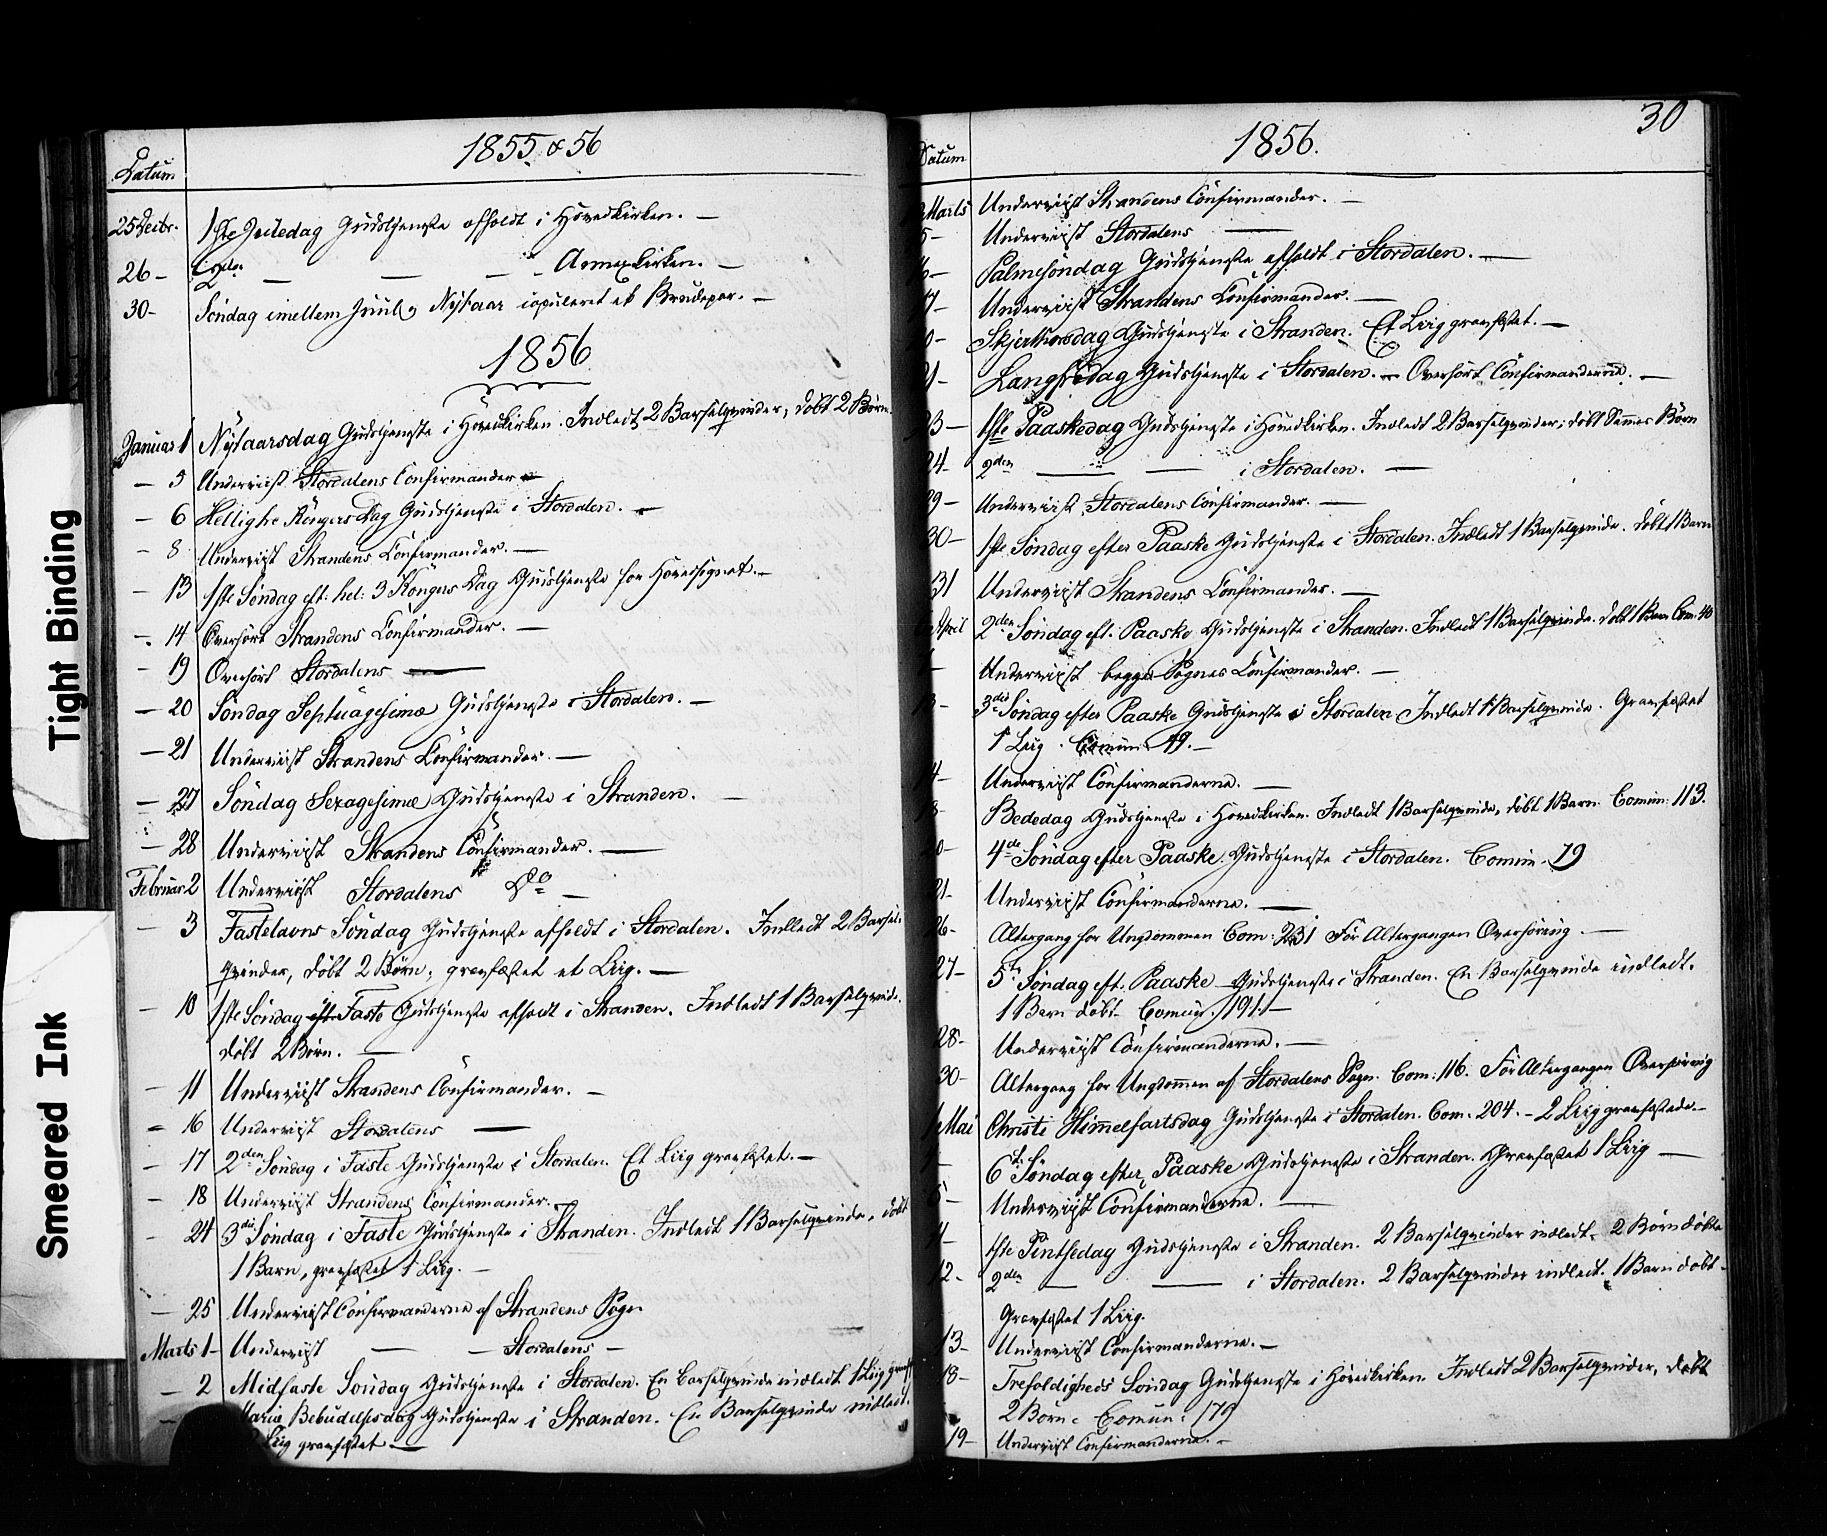 Tight Binding
Smeared Ink
1855 & 56
Datum
25 Decbr. 1ste Juledag Gudstjeneste afholdt i Hovedkirken. —
26 - 2den — — — Annexkirken. —
30 - Søndag imellem Juul og Nytaar copuleret et Brudepar. —
1856
Januar 1 Nytaarsdag Gudstjeneste i Hovedkirken. Indledt 2 Barselqvinder, döbt 2 Börn.
— 5 Underviist Stordalens Confirmander
— 6 Hellighe Kongers Dag Gudstjeneste i Stordalen. —
- 8 Underviist Strandens Confirmander. —
- 13 1ste Søndag eft. hel: 3 Kongers Dag Gudstjeneste for Hovedsognet. —
- 14 Overhört Strandens Confirmander. —
- 19 Overhört Stordalens —
— 20 Søndag Septuagesimæ Gudstjeneste i Stordalen. —
— 21 Underviist Strandens Confirmander. —
— 27 Søndag Sexagesimæ Gudstjeneste i Stranden. —
— 28 Underviist Strandens Confirmander. —
Februar 2 Underviist Stordalens Do —
— 3 Fastelavns Søndag Gudstjeneste afholdt i Stordalen. Indledt 2 Barsel-
qvinder, döbt 2 Börn, gravfæstet et Liig. —
— 10 1ste Søndag eft. Faste Gudstjeneste afholdt i Stranden. Indledt 1 Barselqvinde.
döbt 2 Börn. —
— 11 Underviist Strandens Confirmander. —
— 16 Underviist Stordalens —
— 17 2den Søndag i Faste Gudstjeneste i Stordalen. Et Liig gravfæstet. —
— 18 Underviist Strandens Confirmander. —
— 24 3die Søndag i Faste Gudstjeneste i Stranden. Indledt 1 Barselqvinde, döbt
1 Barn, gravfæstet 1 Liig. —
— 25 Underviist Confirmanderne af Strandens Sogn
Marts 1 - Underviist — — Stordalens —
— 2 Midfaste Søndag Gudstjeneste i Stordalen. En Barselqvinde indledt 1 Liig gravf
Mariæ Bebudelsesdag Gudstjeneste i Stranden. En Barselqvinde indledt.
Liig gravfæstet —
30
1856.
Datum
Marts Underviist Strandens Confirmander. —
5 - Underviist Stordalens —
6 - Palmesøndag Gudstjeneste afholdt i Stordalen. —
7 - Underviist Strandens Confirmander. —
0 - Skjærthorsdag Gudstjeneste i Stranden. Et Liig gravfæstet. —
21 - Langfredag Gudstjeneste i Stordalen. — Overhört Confirmanderne. —
23 — 1ste Paaskedag Gudstjeneste i Hovedkirken. Indledt 2 Barselqvinder; döbt Sammes Börn
24 - 2den — — i Stordalen. —
29 - Underviist Stordalens Confirmander. —
30 - 1ste Søndag efter Paaske Gudstjeneste i Stordalen. Indledt 1 Barselqvinde. döbt 1 Barn
31 Underviist Strandens Confirmander. —
April 2den Søndag eft. Paaske Gudstjeneste i Stranden. Indledt 1 Barselqvinde. döbt 1 Barn Com: 40
Underviist begge Sognes Confirmander. —
3 - 3die Søndag efter Paaske Gudstjeneste i Stordalen Indledt 1 Barselqvinde. Gravfæstet
1 Liig. Comün. 49. —
14 - Underviist Confirmanderne. —
18 - Bededag Gudstjeneste i Hovedkirken. Indledt 1 Barselqvinde, döbt 1 Barn. Comün: 113.
20 - 4de Søndag efter Paaske. Gudstjeneste i Stordalen. Comün. 79
21 - Underviist Confirmanderne. —
26 - Altergang for Ungdommen Com: 231 För Altergangen Overhöring. —
27 - 5te Søndag eft. Paaske Gudstjeneste i Stranden. En Barselqvinde indledt.
1 Barn döbt - Comün. 191. —
28 - Underviist Confirmanderne. —
30 - Altergang for Ungdommen af Stordalens Sogn. Com: 116. För Altergangen Overhöring
1 Mai Christi Himmelfartsdag Gudstjeneste i Stordalen. Com: 204. - 2 Liig gravfæstede. —
6te Søndag efter Paaske Gudstjeneste i Stranden. Gravfæstet 1 Liig —
5 - Underviist Confirmanderne. —
1ste Pintsedag Gudstjeneste i Stranden. 2 Barselqvinder indledt. 2 Börn döbte
12 - 2den — — i Stordalen. 2 Barselqvinder indledt. 1 Barn döbt -
Gravfæstet 1 Liig.
13 - Underviist Confirmanderne. —
18 - Trefoldigheds Søndag Gudstjeneste i Hovedkirken. Indledt 2 Barselqvinder, döbt
2 Börn. Comün: 179
19 - Underviist Confirmanderne. -